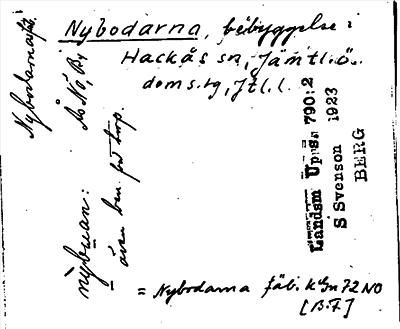 Nybodarna, bebyggelse i
Hackås sn, Jämtl. ö.
doms.tg, Jtl. l.
Nybodarna
Ås NÖ, B;
nybuan:
även ben. på torp.
Landsm Upps. 790:2
S Svenson 1923
BERG
= Nybodarna fäb. k Gn 72 NO
[B:7]